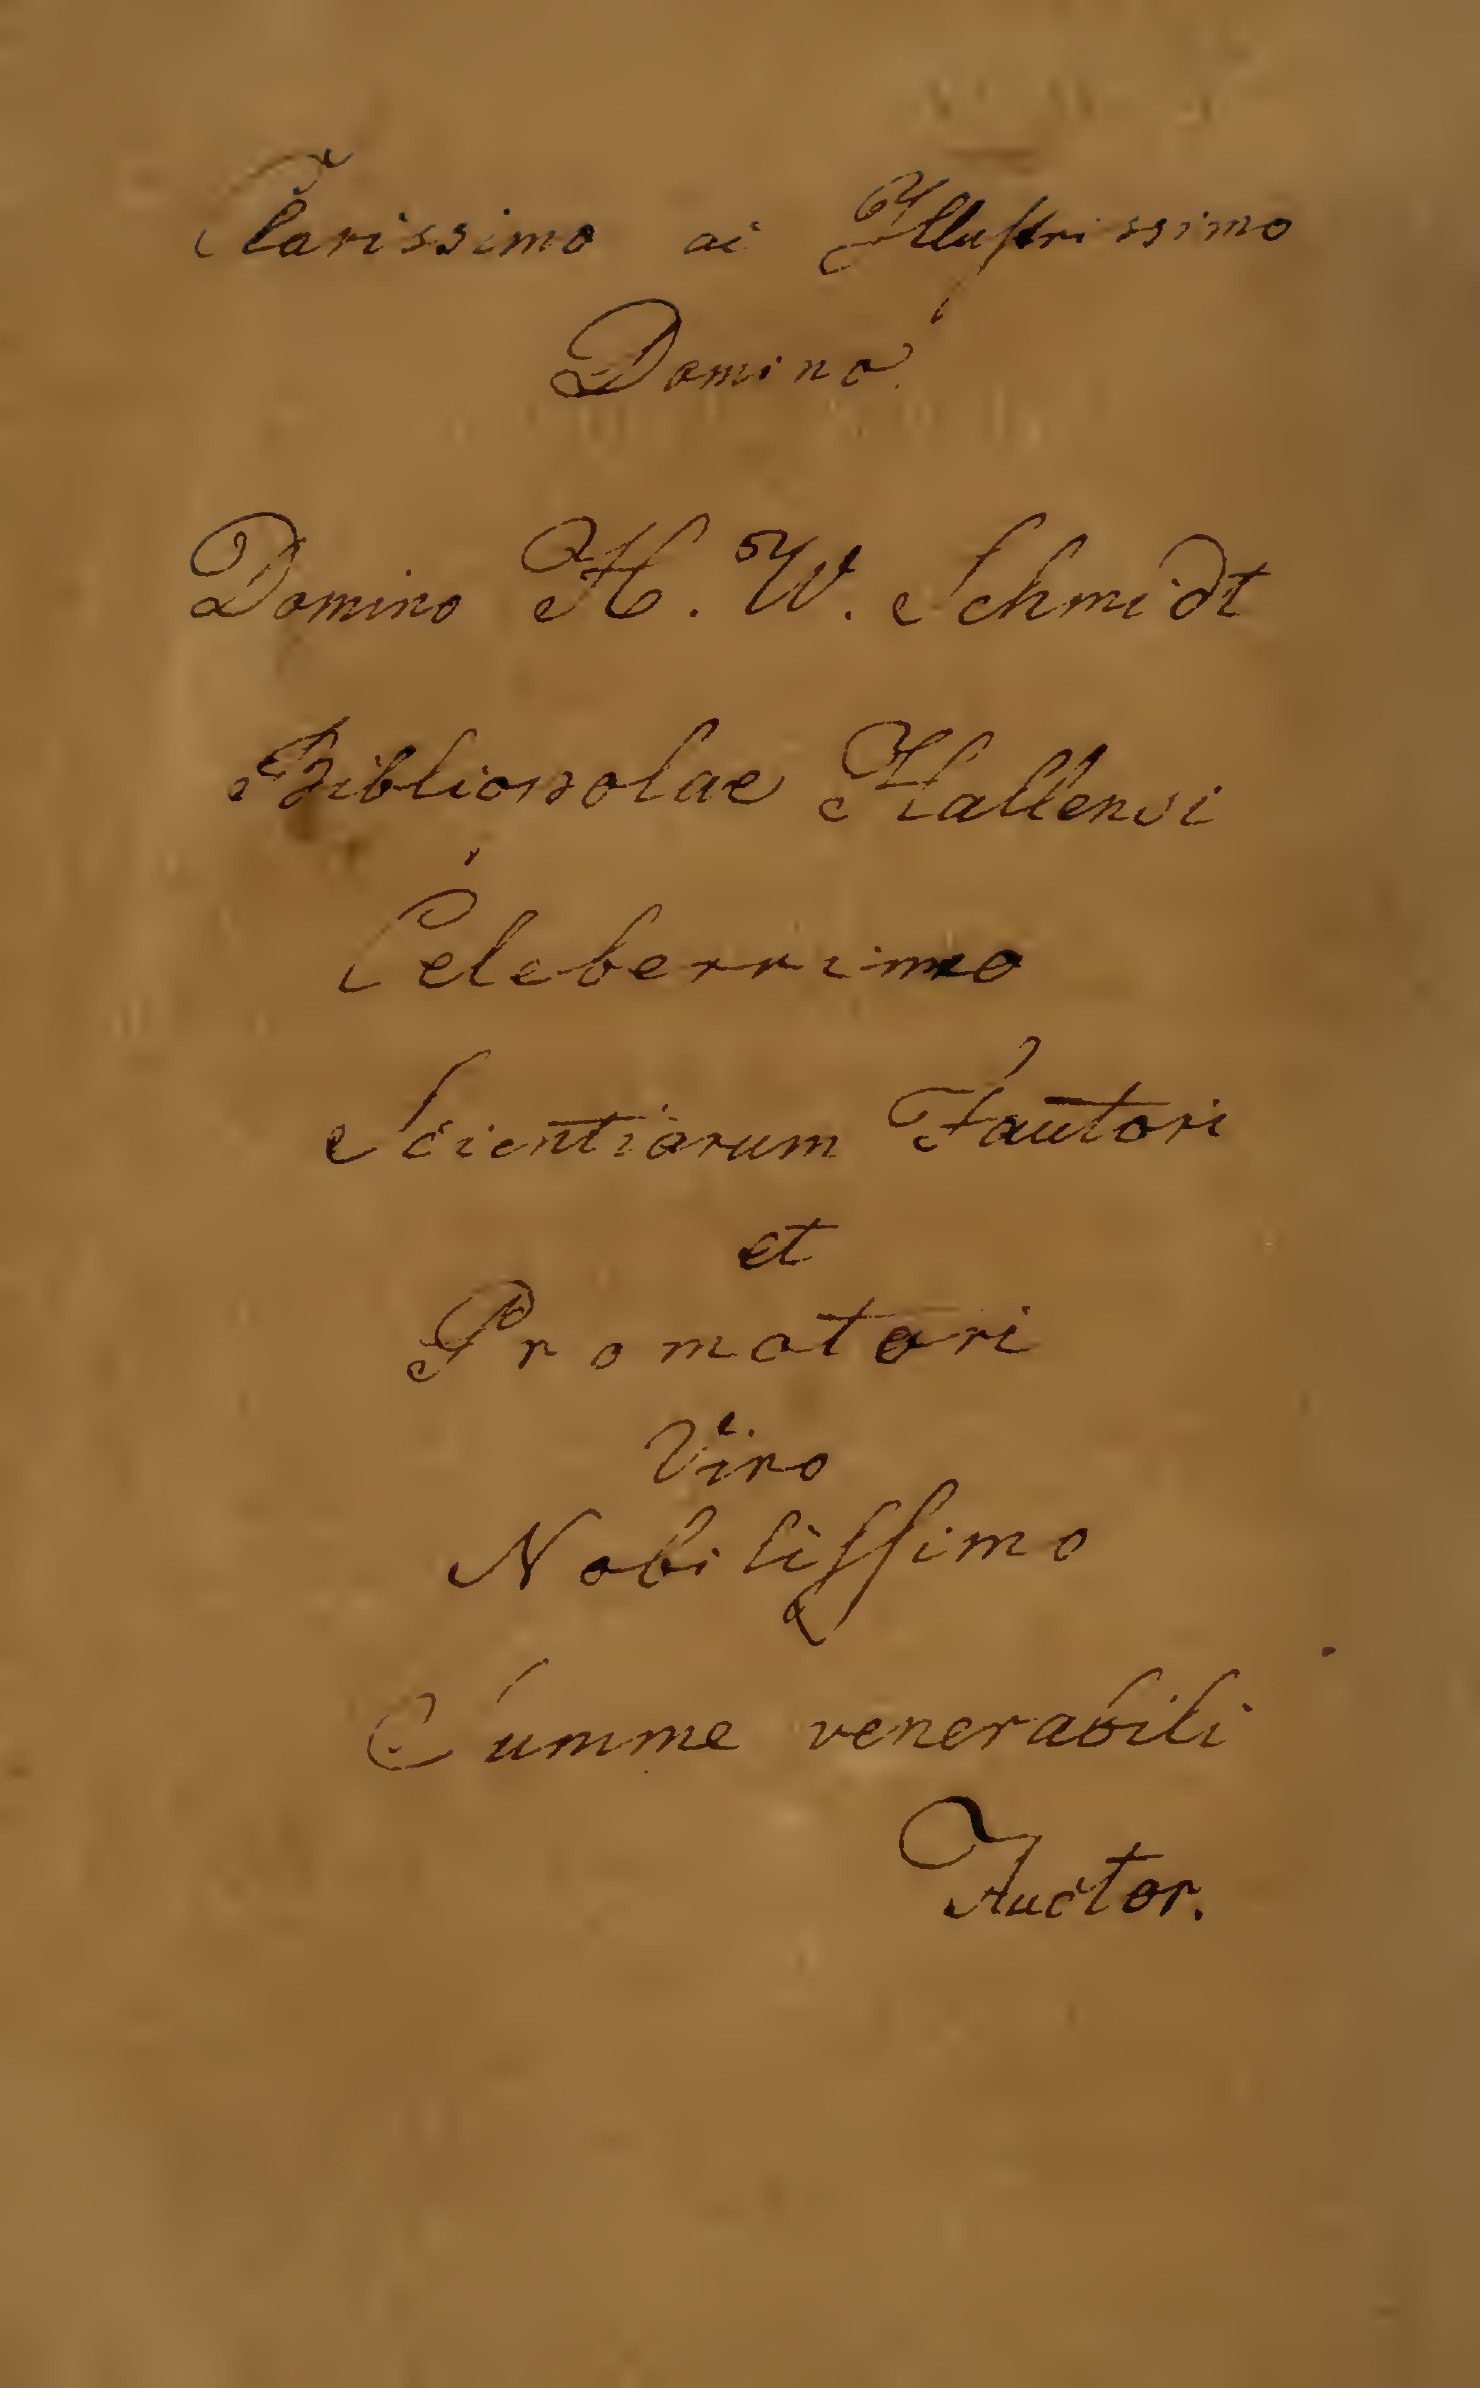 Clarissimo ac Illustrissimo
Domino
Domino H. W. Schmidt
Bibliopolae Hallensi
Celeberrimo
Scientiarum Fautori
et
Promotori
Viro
Nobilissimo
Summe venerabili
Auctor.